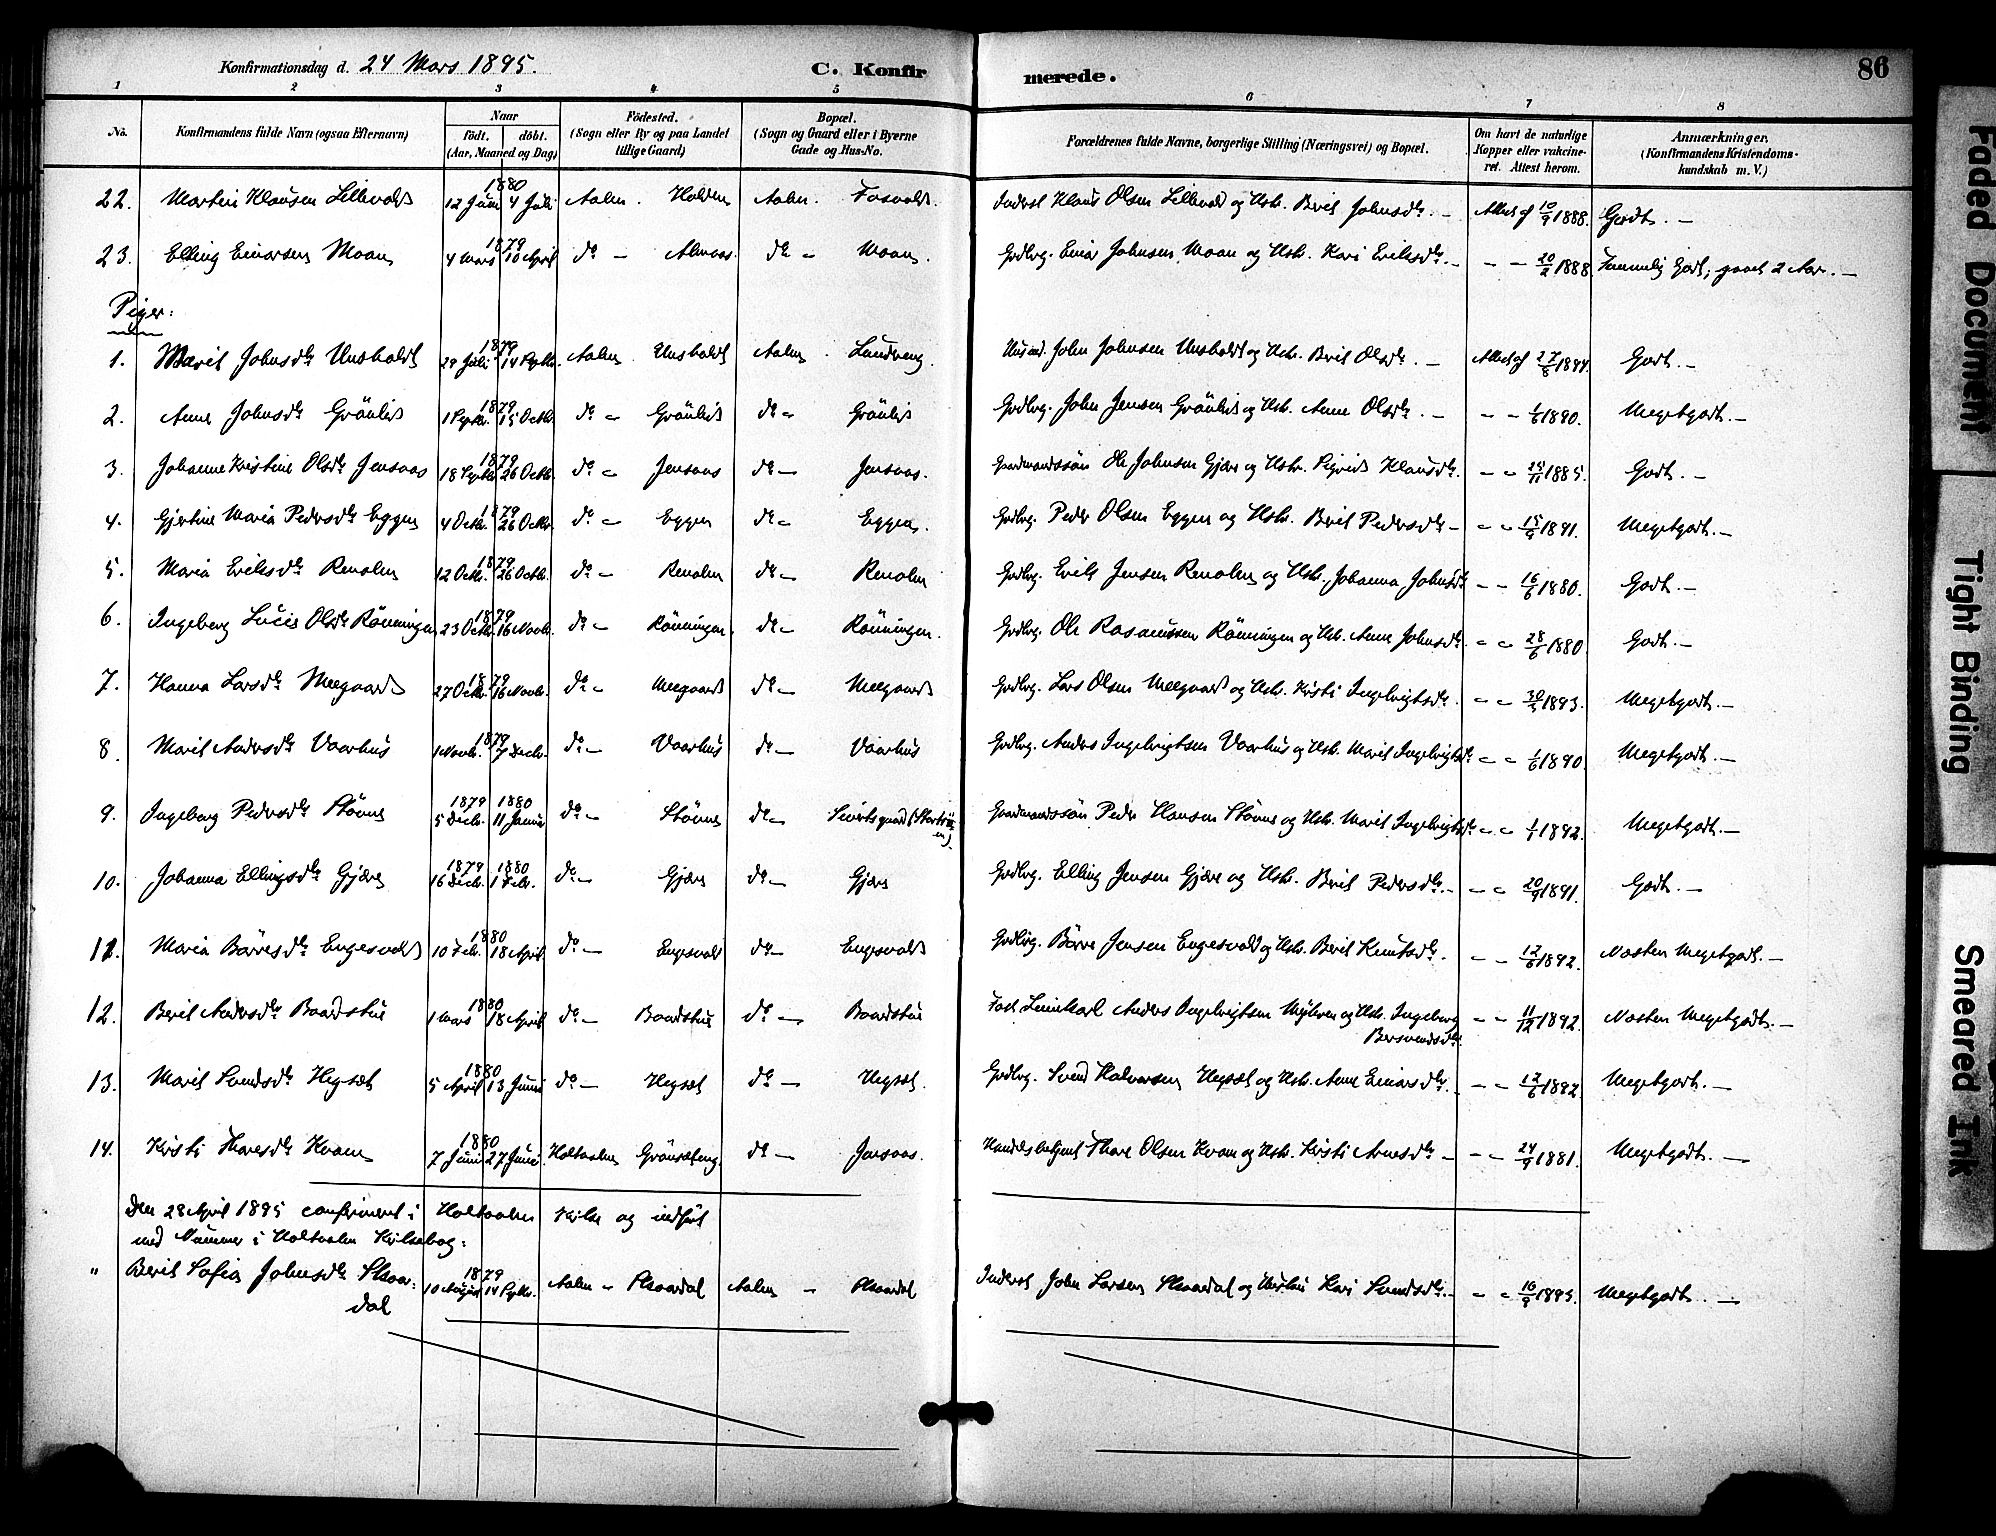 Konfirmationsdag d. 24 Mars 1895.
C. Konfir merede. 86
1 2 3 4 5 6 7 8
No. Konfirmandens fulde Navn (ogsaa Efternavn) Naar født. døbt. (Aar, Maaned og Dag) Fødested. (Sogn eller By og paa Landet tillige Gaard) Bopæl. (Sogn og Gaard eller i Byerne Gade og Hus-No. Forældrenes fulde Navne, borgerlige Stilling (Næringsvei) og Bopæl. Om havt de naturlige Kopper eller vakcineret. Attest herom. Anmærkninger. (Konfirmandens Kristendomskundskab m. V.)
22. Martin Klausen Lillevold 1880 12 Juni 4 Juli Aalen. Holden Aalen. Inderst Klaus Olsen Lillevold og Hstr. Berit Johnsdtr. - Attest af 10/9 1888. Godt. -
23. Elling Einarsen Moan 1879 4 Mars 10 April do - Almaas. do - Moan. Grdbrg. Einar Johnsen Moan og Hstr. Kari Eriksdtr. - - - 20/2 1888. Temmelig Godt, gaaet 2 Aar. -
Piger:
1. Marit Johnsdtr Unsholdt 1879 29 Juli 14 Septbr. Aalen. Unsholdt Aalen. Husmd. John Johnsen Unsholdt og Hstr. Berit Olsdtr. - Attest af 27/8 1894. Godt. -
2. Anne Johnsdtr Grönlid 1879 1 Septbr. 15 Octbr. do - Grönlid do - Grönlid Grdbrg. John Jensen Grönlid og Hstr. Anne Olsdtr. - - - 1/6 1890. Megetgodt. -
3. Johanne Kristine Olsdtr Jensaas 1879 18 Septbr 26 Octbr. do - Jensaas do - Jensaas. Gaardmandssön Ole Johnsen Gjære og Hstr. Sigrid Klausdtr. - - 1885. Godt. -
4. Gjertine Maria Pedersdtr Eggen 1879 4 Octbr. 26 Octbr. do - Eggen do - Eggen. Grdbrg. Peder Olsen Eggen og Hstr. Berit Pedersdtr - - - 15/9 1891. Megetgodt. -
5. Maria Eriksdtr Renolen 1879 12 Octbr. 26 Octb. do - Renolen do - Renolen Grdbrg. Erik Jensen Renolen og Hstr. Johanna Johnsdtr - - 16/6 1880. Godt. -
6. Ingeborg Lucie Olsdtr Rönningen 1879 23 Octbr. 16 Novb. do - Rönningen. do - Rönningen. Grdbrg. Ole Rasmussen Rönningen og Hstr. Anne Johnsdtr. - - 28/6 1880 Godt. -
7. Hanna Larsdtr Meegaard 1879 27 Octb. 16 Novb. do - Meegaard do - Meegaard Grdbrg. Lars Olsen Meegaard og Hstr. Kristi Ingebrigtsdtr. - - 1893. Megetgodt. -
8. Marit Andersdtr Vaarhus 1879 1 Novbr. 7 Decbr. do - Vaarhus do - Vaarhus Grdbrg. Anders Ingebrigtsen Vaarhus og Hstr. Marit Ingebrigtsdtr - - 1/6 1890. Megetgodt. -
9. Ingeborg Pedersdtr Stövne 1879 5 Decbr. 1880 11 Januar do - Stövne do - Gaardmandssön Peder Hansen Stövne og Hstr. Marit Ingebrigtsdtr - - 1/1 1892. Megetgodt. -
10. Johanna Ellingsdtr Gjære 1879 16 Decbr. 1880 1 Febr. do - Gjære do - Gjære Grdbrg. Elling Jensen Gjære og Hstr. Berit Pedersdtr. - - - 20/9 1891. Godt. -
11. Maria Börresdtr Engesvold 1880 10 Feb. 18 April do - Engesvold do - Engesvold Grdbrg. Börre Jensen Engesvold og Hstr. Berit Knutsdtr. - - 12/6 1892. Næsten Megetgodt. -
12. Berit Andersdtr Baardstu 1880 1 Mars 18 April do - Baardstu do - Baardstu Anders Ingebrigtsen Myhren og Hstr. Ingeborg Bersvendsdtr. - - 11/12 1892. Næsten Megetgodt. -
13. Marit Svendsdtr Hegset 1880 5 April 13 Juni do - Hegset do - Hegset. Grdbrg. Svend Halvorsen Hegset og Hstr. Anne Einarsdtr. - - 12/6 1892. Megetgodt. -
14. Kristi Tharesdtr Kvam 1880 7 Juni 27 Juni. Holtaalen Grönsæteng do - Jensaas. Handelsbetjent Thare Olsen Kvam og Hstr. Kristi Arnesdtr - - - 24/9 1881. Megetgodt. -
Den 28 April 1895 confirmeret i Holtaalen Kirke og indfört
med Nummer i Holtaalen Kirkebog:
" Berit Sofia Johnsdtr Skaardal 1879 10 August 14 Septbr. Aalen - Skaardal Aalen - Skaardal Inderst John Larsen Skaardal og Hustru Kari Svendsdtr. - - - Megetgodt. -
Faded Document
Tight Binding
Smeared Ink